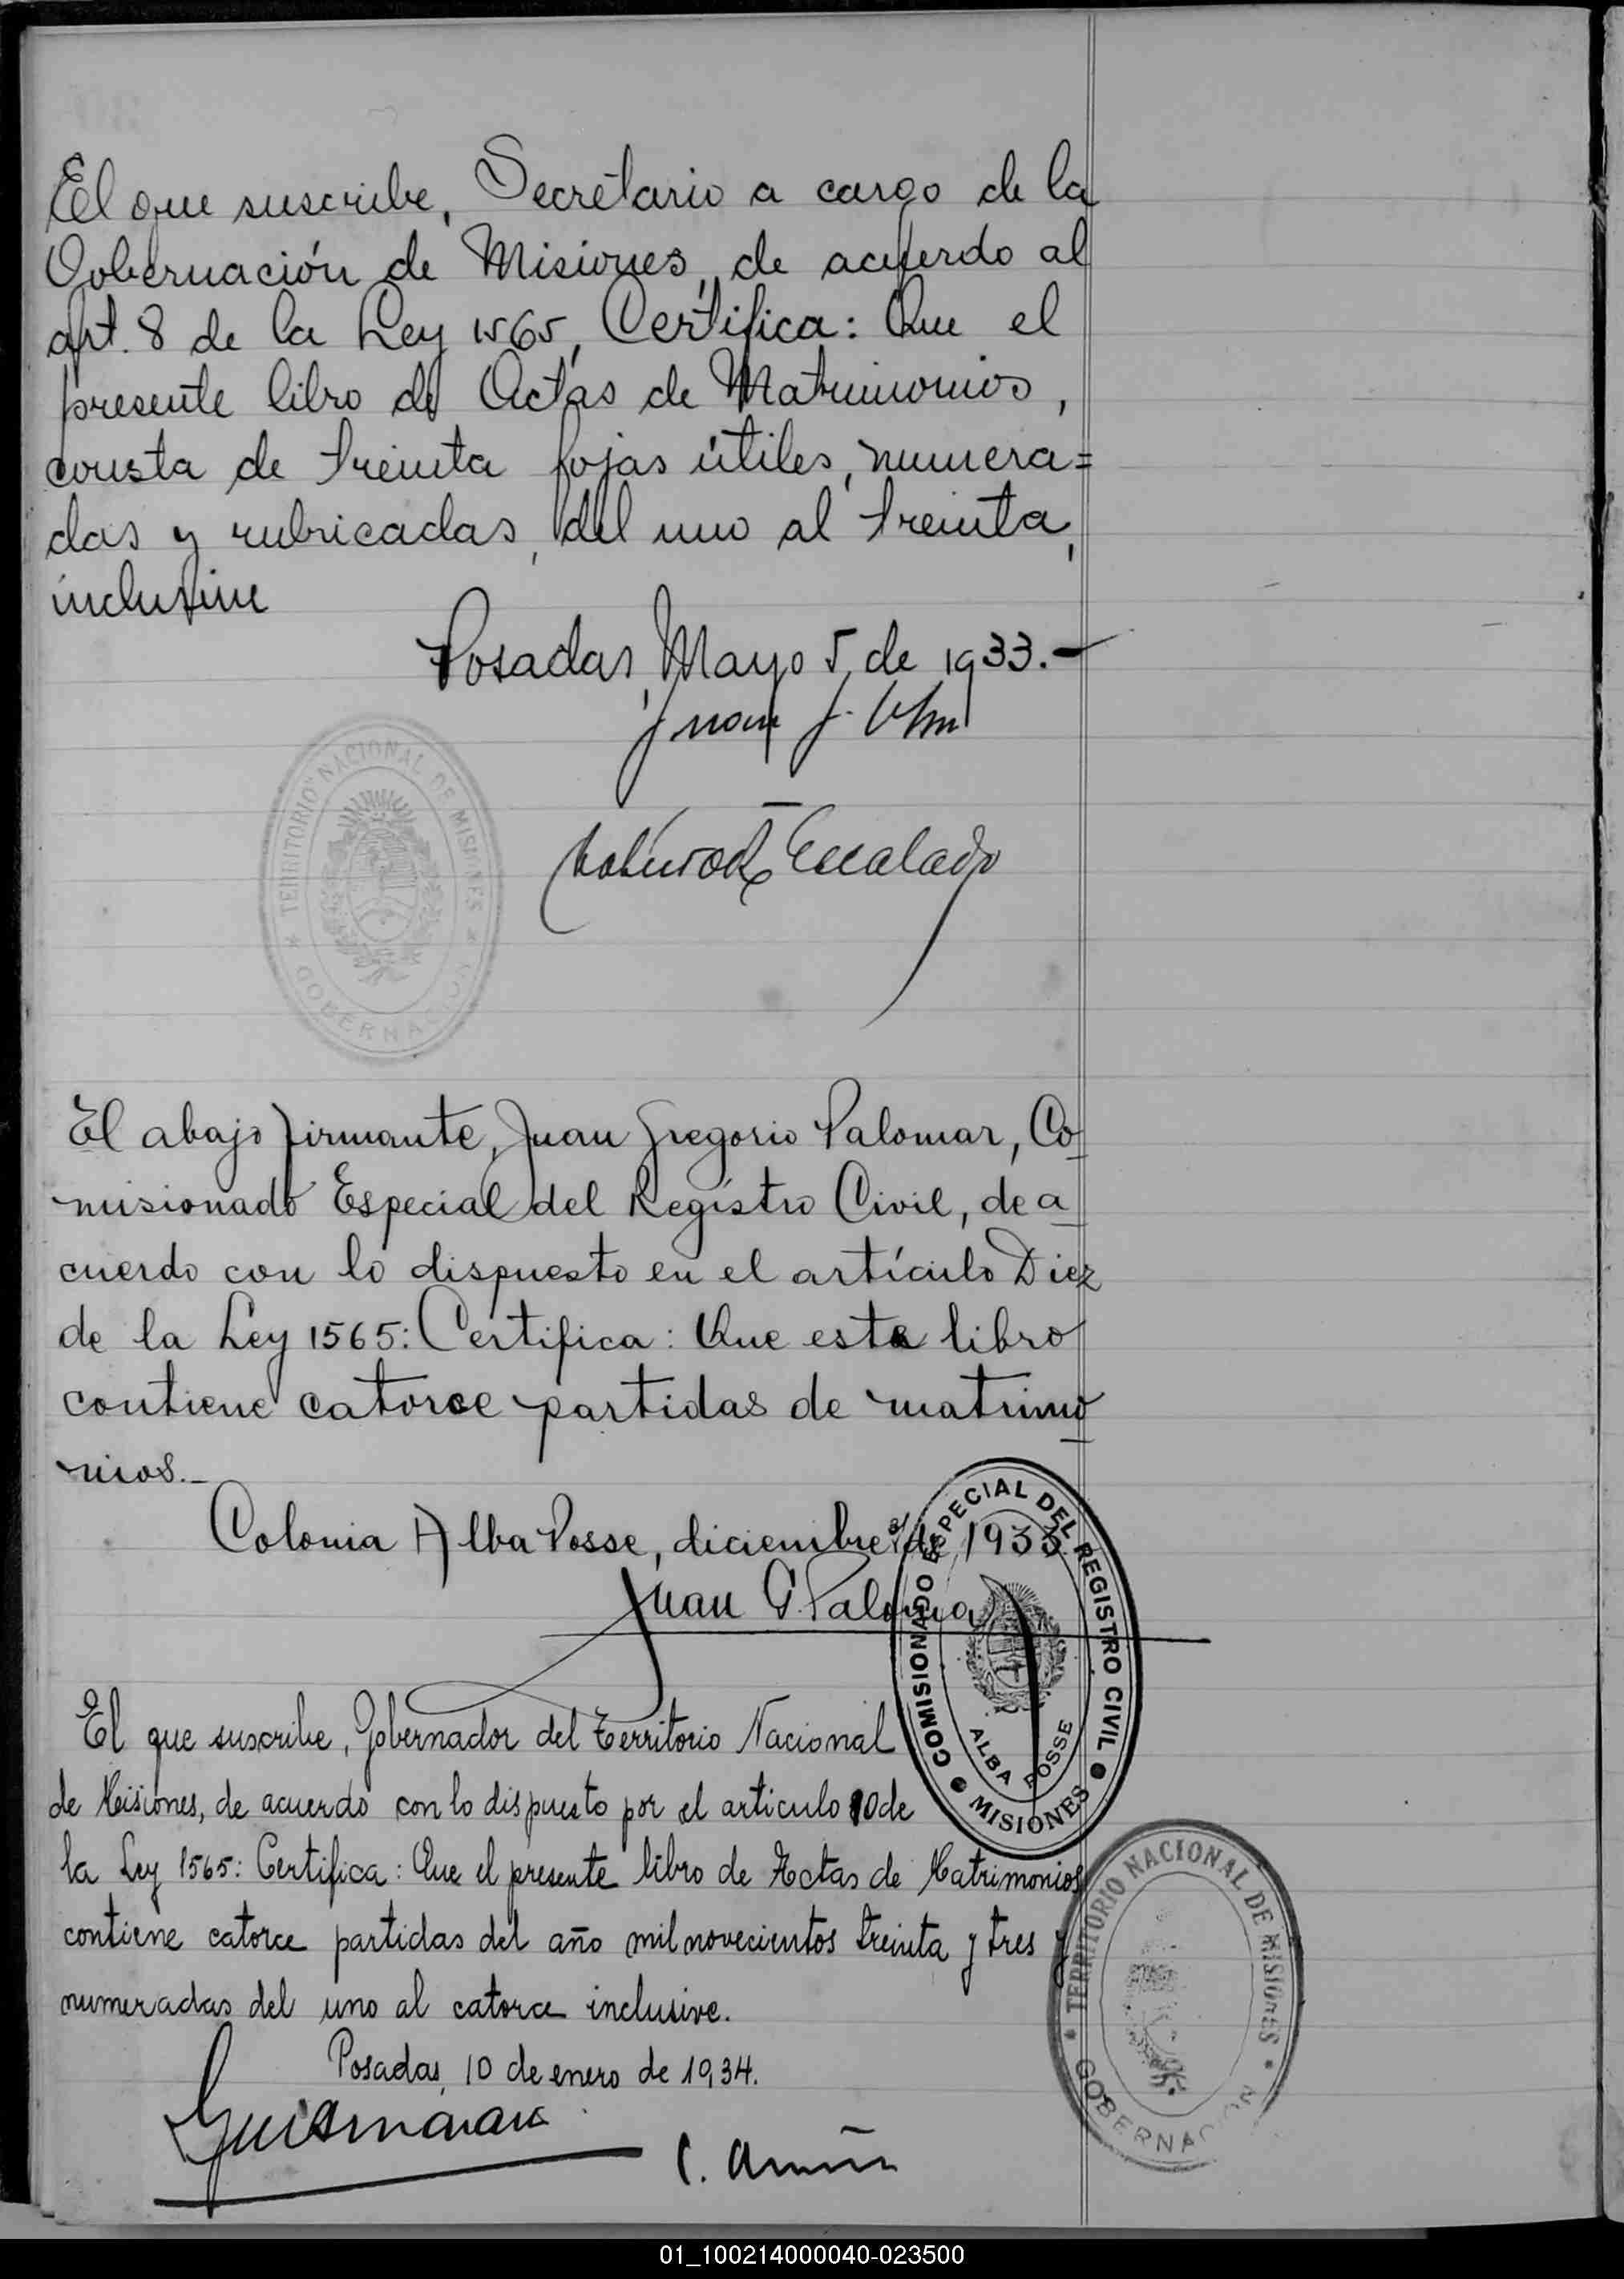 El que suscribe, Secretario a cargo de la
Gobernación de Misiones, de acuerdo al
art. 8 de la Ley 1565, Certifica: Que el
presente libro de Actas de Matrimonios,
consta de treinta fojas útiles, numera=
das y rubricadas, del uno al treinta,
inclusive
Posadas, Mayo 5 de 1933.-
Juan J.
TERRITORIO NACIONAL DE MISIONES
GOBERNACION
El abajo firmante, Juan Gregorio Palomar, Co
misionado Especial del Registro Civil, de a
cuerdo con lo dispuesto en el artículo Diez
de la Ley 1565: Certifica: Que este libro
contiene catorce partidas de matrimo
nios.-
Colonia Alba Posse, diciembre 31 de 1933
Juan G. Palomar
COMISIONADO ESPECIAL DEL REGISTRO CIVIL
ALBA POSSE
MISIONES
El que suscribe, Gobernador del Territorio Nacional
de Misiones, de acuerdo con lo dispuesto por el articulo 10 de
la Ley 1565: Certifica: Que el presente libro de Actas de Matrimonios
contiene catorce partidas del año mil novecientos treinta y tres y
numeradas del uno al catorce inclusive.
Posadas, 10 de enero de 1934.
TERRITORIO NACIONAL DE MISIONES
GOBERNACION
C.
01_100214000040-023500